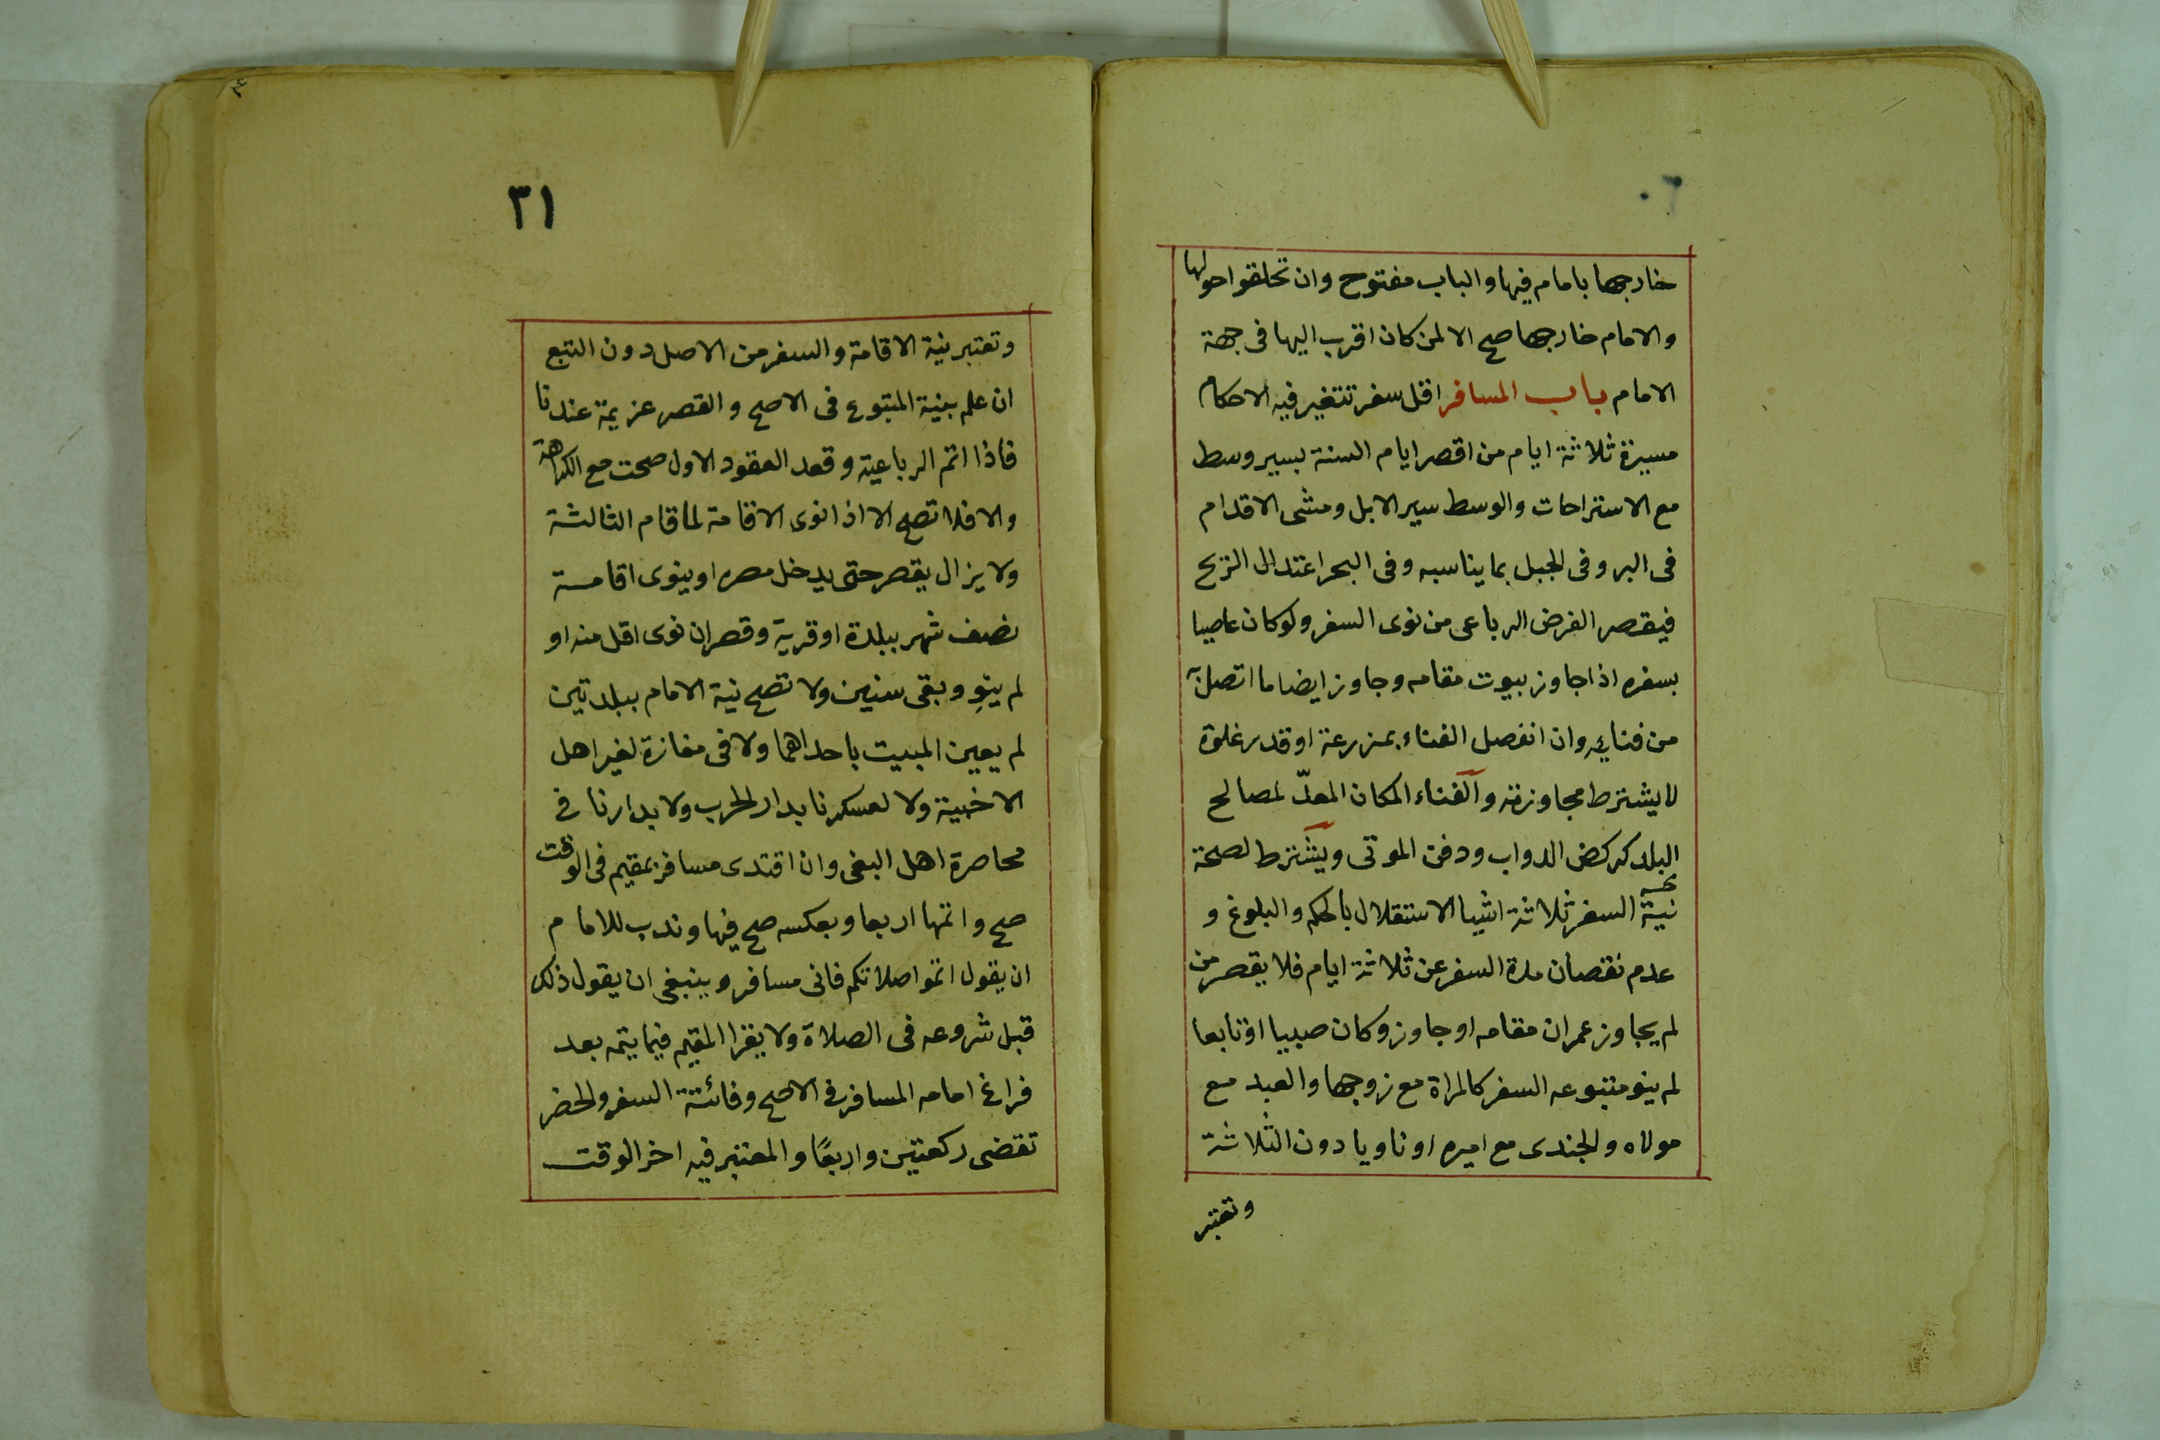 خارجها بامام فيها والباب مفتوح وان تحلقوا حولها
والامام خارجها صح الا لمن كان اقرب اليها فى جهة
الامام باب المسافر اقل سفر تتغير فيه الاحكام
مسيرة ثلاثة ايام من اقصر ايام السنة بسير وسط
مع الاستراحات والوسط سير الابل ومشى الاقدام
فى البر وفى الجبل بما يناسبه وفى البحر اعتدال الريح
فيقصر الفرض الرباعى من نوى السفر ولو كان عاصيا
بسفره اذا جاوز بيوت مقامه وجاوز ايضا ما اتصل به
من فنايه وان انفصل الفناء بمزرعة او قدر غلوة
لا يشترط مجاوزته والفناء المكان المعدّ لمصالح
البلد كركض الدواب ودفن الموتى ويشترط لصحة
نية السفر ثلاثة اشيا الاستقلال بالحكم والبلوغ و
عدم نقصان مدة السفر عن ثلاثة ايام فلا يقصر من
لم يجاوز عمران مقامه او جاوز وكان صبيا او تابعا
لم ينو متبوعه السفر كالمراة مع زوجها والعبد مع
مولاه والجندى مع اميره او ناويا دون الثلاثة
وتعتبر
٣١
وتعتبر نية الاقامة والسفر من الاصل دون التبع
ان علم بنية المتبوع فى الاصح والقصر عزيمة عندنا
فاذا اتم الرباعية وقعد العقود الاول صحت مع الكراهة
والا فلا تصح الا اذا نوى الاقامة لما قام الثالثة
ولا يزال يقصر حتى يدخل مصره او ينوى اقامة
نصف شهر ببلدة او قرية وقصر ان نوى اقل منه او
لم ينوِ وبقى سنين ولا تصح نية الامام ببلدتين
لم يعين المبيت باحداهما ولا فى مفازة لغير اهل
الاخبية ولا لعسكرنا بدار الحرب ولا بدارنا فى
محاصرة اهل البغى وان اقتدى مسافر بمقيم فى الوقت
صح واتمها اربعا وبعكسه صح فيها وندب للامام
ان يقول اتموا صلاتكم فانى مسافر وينبغى ان يقول ذلك
قبل شروعه فى الصلاة ولا يقرا المقيم فيما يتمه بعد
فراغ امامه المسافر فى الاصح وفائتة السفر والحضر
تقضى ركعتين واربعًا والمعتبر فيه اخر الوقت